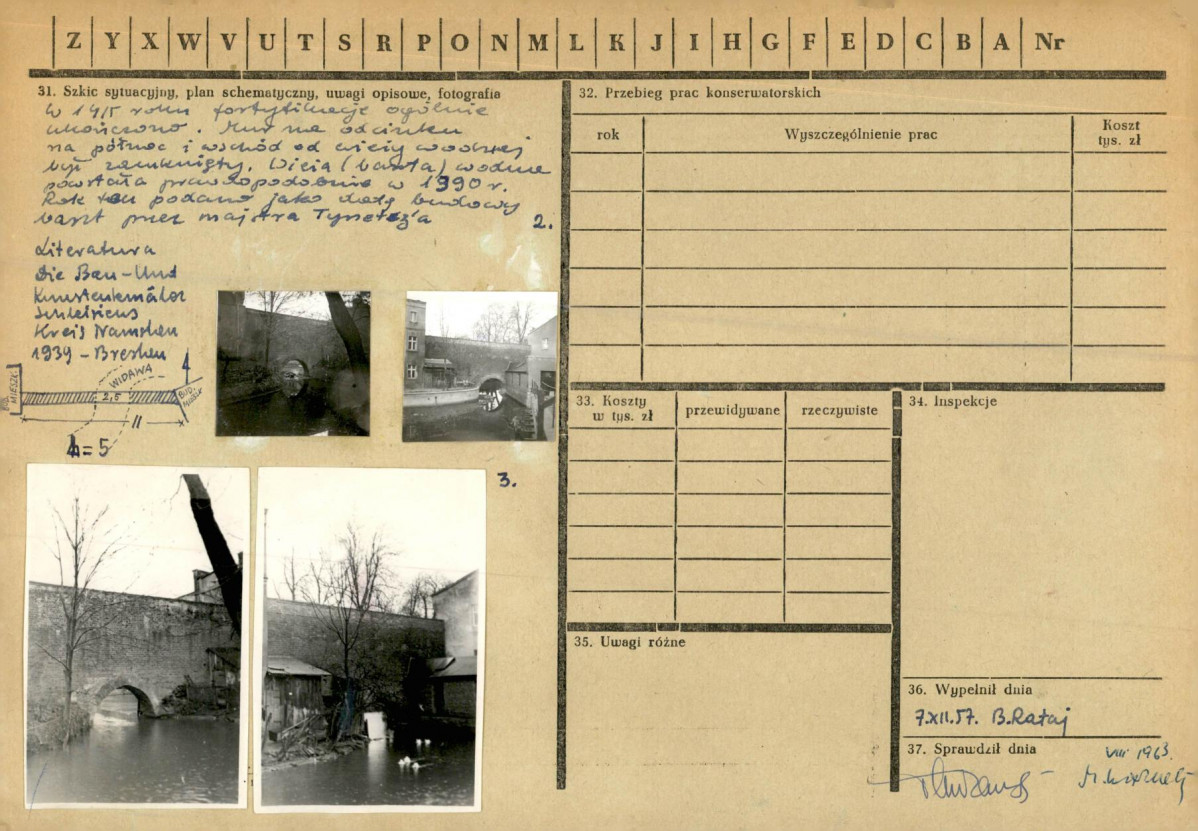 Z Y X W V U T S R P O N M L K J I H G F E D C B A Nr
31. Szkic sytuacyjny, plan schematyczny, uwagi opisowe, fotografia
W 1415 roku fortyfikacje ogólnie
ukończono. Mur na odcinku
na północ i wschód od wieży wodnej
był zamknięty. Wieża (baszta) wodna
powstała prawdopodobnie w 1390 r.
Rok ten podano jako datę budowy
baszt przez majstra
2.
Literatura
Die Bau-Und
Kreis Namslau
1939 - Breslau
WIDAWA
2,5
11
h = 5
3.
32. Przebieg prac konserwatorskich
rok
Wyszczególnienie prac
Koszt
tys. zł
33. Koszty
w tys. zł
przewidywane
rzeczywiste
34. Inspekcje
35. Uwagi różne
36. Wypełnił dnia
7.XII.57. B.Rataj
37. Sprawdził dnia
VIII 1963.